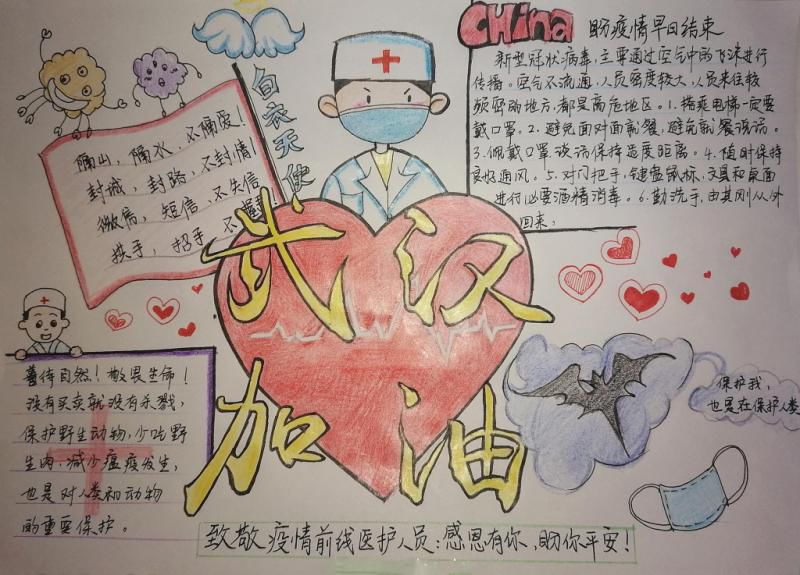 CHINA
盼疫情早日结束
新型冠状病毒,主要通过空气中的飞沫进行
传播。空气不流通,人员密度较大,人员来往较
频密的地方,都是高危地区。1.搭乘电梯一定要
戴口罩。2.避免面对面就餐,避免就餐谈话。
3.佩戴口罩谈话保持适度距离。4.随时保持
良好通风。5.对门把手,键盘鼠标,文具和桌面
进行必要酒精消毒。6.勤洗手,由其刚从外
回来,
白衣天使
隔山,隔水,不隔爱!
封城,封路,不封情
微信,短信,不失信
拱手,招手,不握手!
武汉
加油
善待自然!敬畏生命!
没有买卖就没有杀戮,
保护野生动物,少吃野
生肉,减少瘟疫发生,
也是对人类和动物
的重要保护。
保护我,
也是在保护人类
致敬疫情前线医护人员:感恩有你,盼你平安!